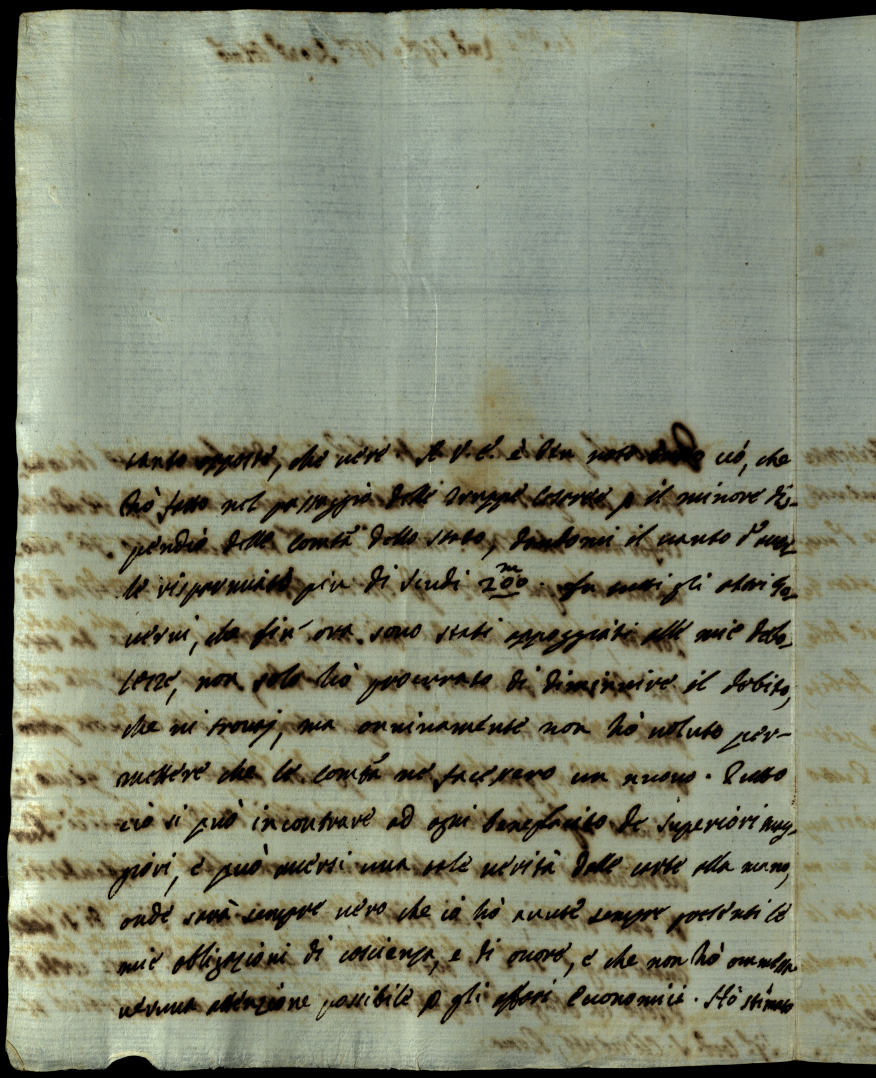 tanto opposte, che vere. A V. E. è ben noto ciò, che
hò fatto nel passaggio delle Truppe Estere p il minore di-
pendio delle Comtà dello stato, dandomi il vanto d'aver-
le risparmiato piu di scudi 200m. In tutti gli altri Go-
verni, che fin' ora sono stati appoggiati alle mie debo-
lezze, non solo hò procurato di diminuire il debito,
che vi trovaj, ma onninamente non hò voluto per-
mettere che le Comtà ne facessero un nuovo. Tutto
ciò si può incontrare ad ogni beneplacito de Superiori mag-
giori, e può aversi una tale verità dalle carte alla mano,
onde sarà sempre vero che io hò avute sempre presenti le
mie obligazioni di coscienza, e di onore, e che non hò ommessa
veruna attenzione possibile p gli affari Economici. Hò stimato